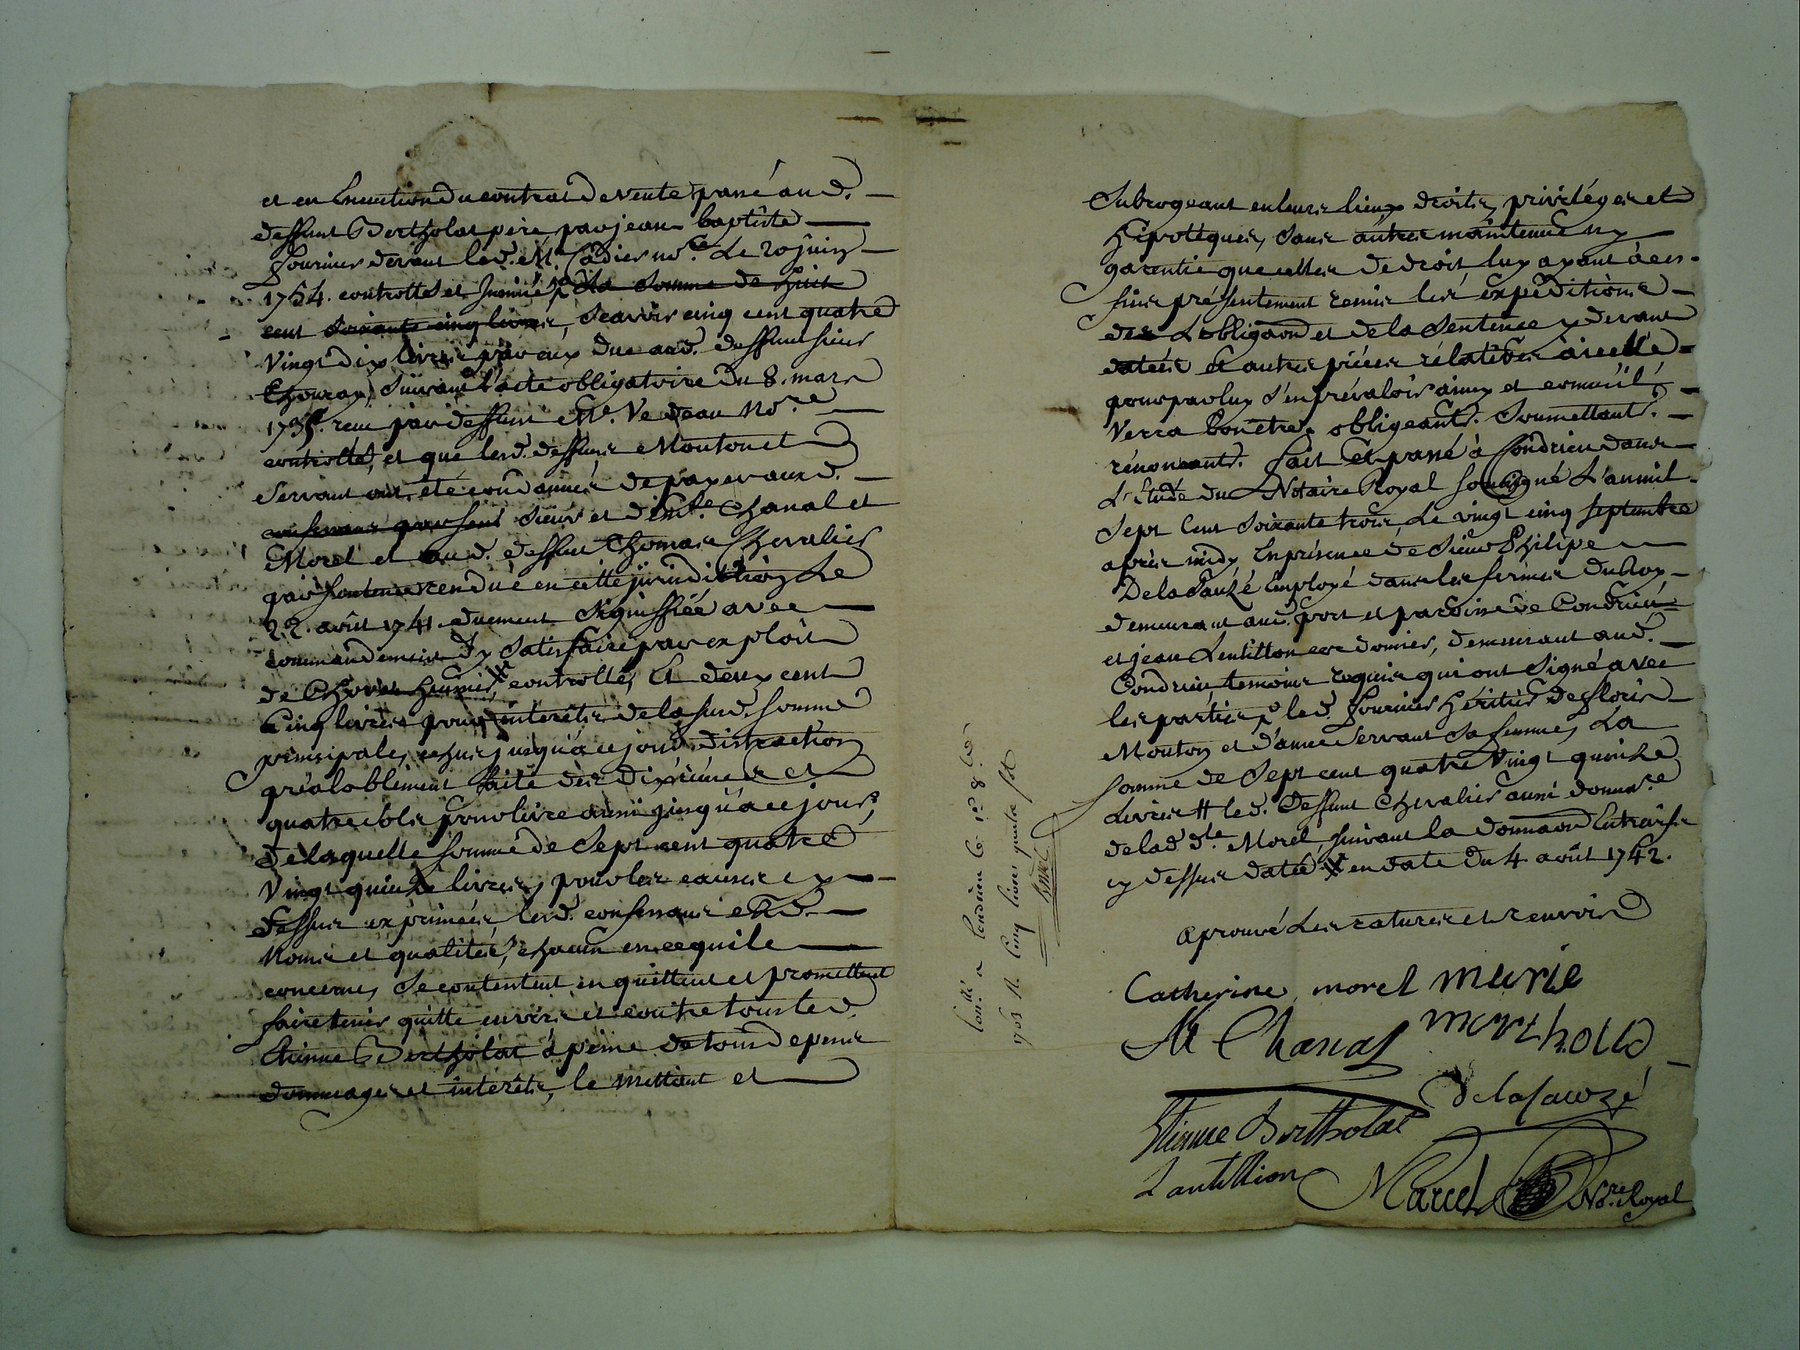 et en Execution du contrat de vente passé aud.
deffunt Bertholat pere par jean baptiste
fournier devant led. Me. Cadier nore. Le 20 juin
1754. controllé et Insinué, la somme de huit
cent soixante cinq livres, Scavoir cinq cent quatre
Vingt dix livres par eux due aud. deffunt sieur
Suivant l'acte obligatoire du 8. mars
1735. recu par deffunt Me. Vedeau Nore
controllé, et que lesd. deffunts Mouton et
Servant ont été condamnés de payer auxd.
sieur et demlle. Chanal et
Morel et aud. deffunt Thomas Chevalier
par Sentence rendue en cette jurisdiction Le
22. août 1741. duement Signiffiée avec
commandement d'y Satisfaire par exploit
de controllé, Et deux cent
Cinq livres pour interêts de lasusd. somme
principale, echus jusqu'à ce jour distraction
préalablement faite des dixiémes et
quatre sols pour livre aussi jusqu'à ce jour,
de laquelle somme de Sept cent quatre
Vingt quinze livres, pour les causes cy
dessus exprimées, lesd. confessants esd.
Noms et qualités, chacun en ce qui le
concerne, Se contentent en quittent et promettent
faire tenir quitte envers et contre tous led.
Etienne Bertholat à peine de tous depens
dommages et interêts, le mettant et
Subrogeant en leurs lieux droits, privilèges et
Hipoteques, sans autres maintenue ny
garentie que celles de droit luy ayant à ces
fins présentement remis les expeditions
des L'obligaon et de la Sentence y devant
datées et autres piéces rélatives à icelle
pour par luy s'en prévaloir ainsy et comme il
Verra bon être. obligeants. Soumettants.
rénonceants. fait et passé à Condrieu dans
L'Etude du Notaire Royal soussigné L'an mil
Sept Cent Soixante trois Le vingt cinq septembre
après midy En présence de Sieur Philipe
Delasauzé Employé dans les fermes du Roy
demeurant aud. port et paroisse de Condrieu
et jean Lentillon cordonnier, demeurant aud.
Condrieu, temoins requis qui ont Signé avec
les parties. led. fournier Héritier de floris
Mouton et d'anne Servant Sa femme, La
somme de Sept cent quatre Vingt quinze
Livres # led. deffunt Chevalier aussi donnare
de lad. dlle. Morel, suivant la donnaon Entrevifs
cy dessus datée X en date du 4 août 1742.
aprouvé Les ratures et renvois
Catherine morel marie
Chanal
delasauzé
Etienne Bertholat
Lantillion Marcel Nore. Royal